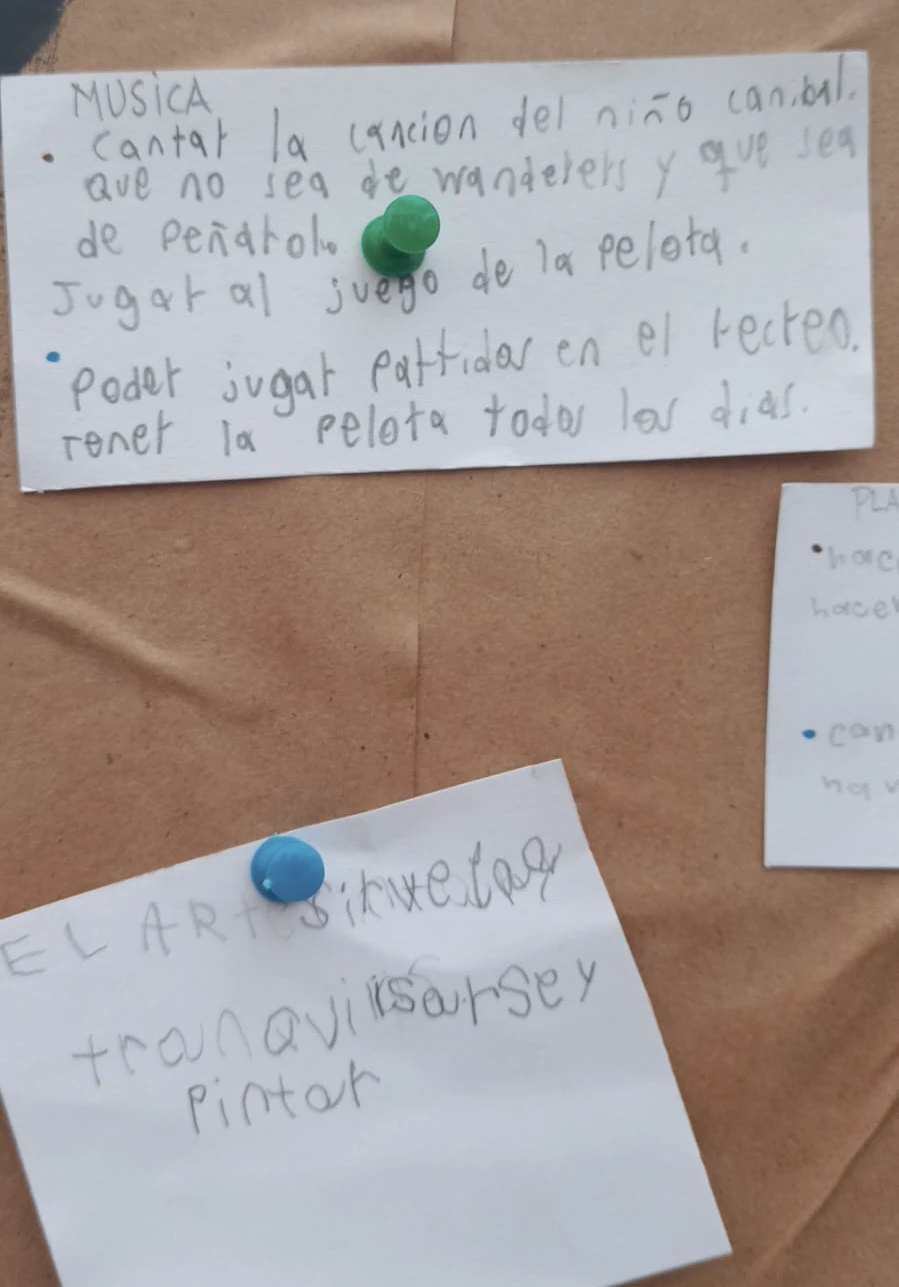 MUSiCA
• cantar la cancion del niño canibal.
que no sea de wanderers y que sea
de peñarol.
Jugar al juego de la pelota.
• poder jugar partidos en el recreo.
Tener la pelota todos los dias.
PLA
• hac
hacer
• can
ha
EL ARt
tranquilisarsey
pintar